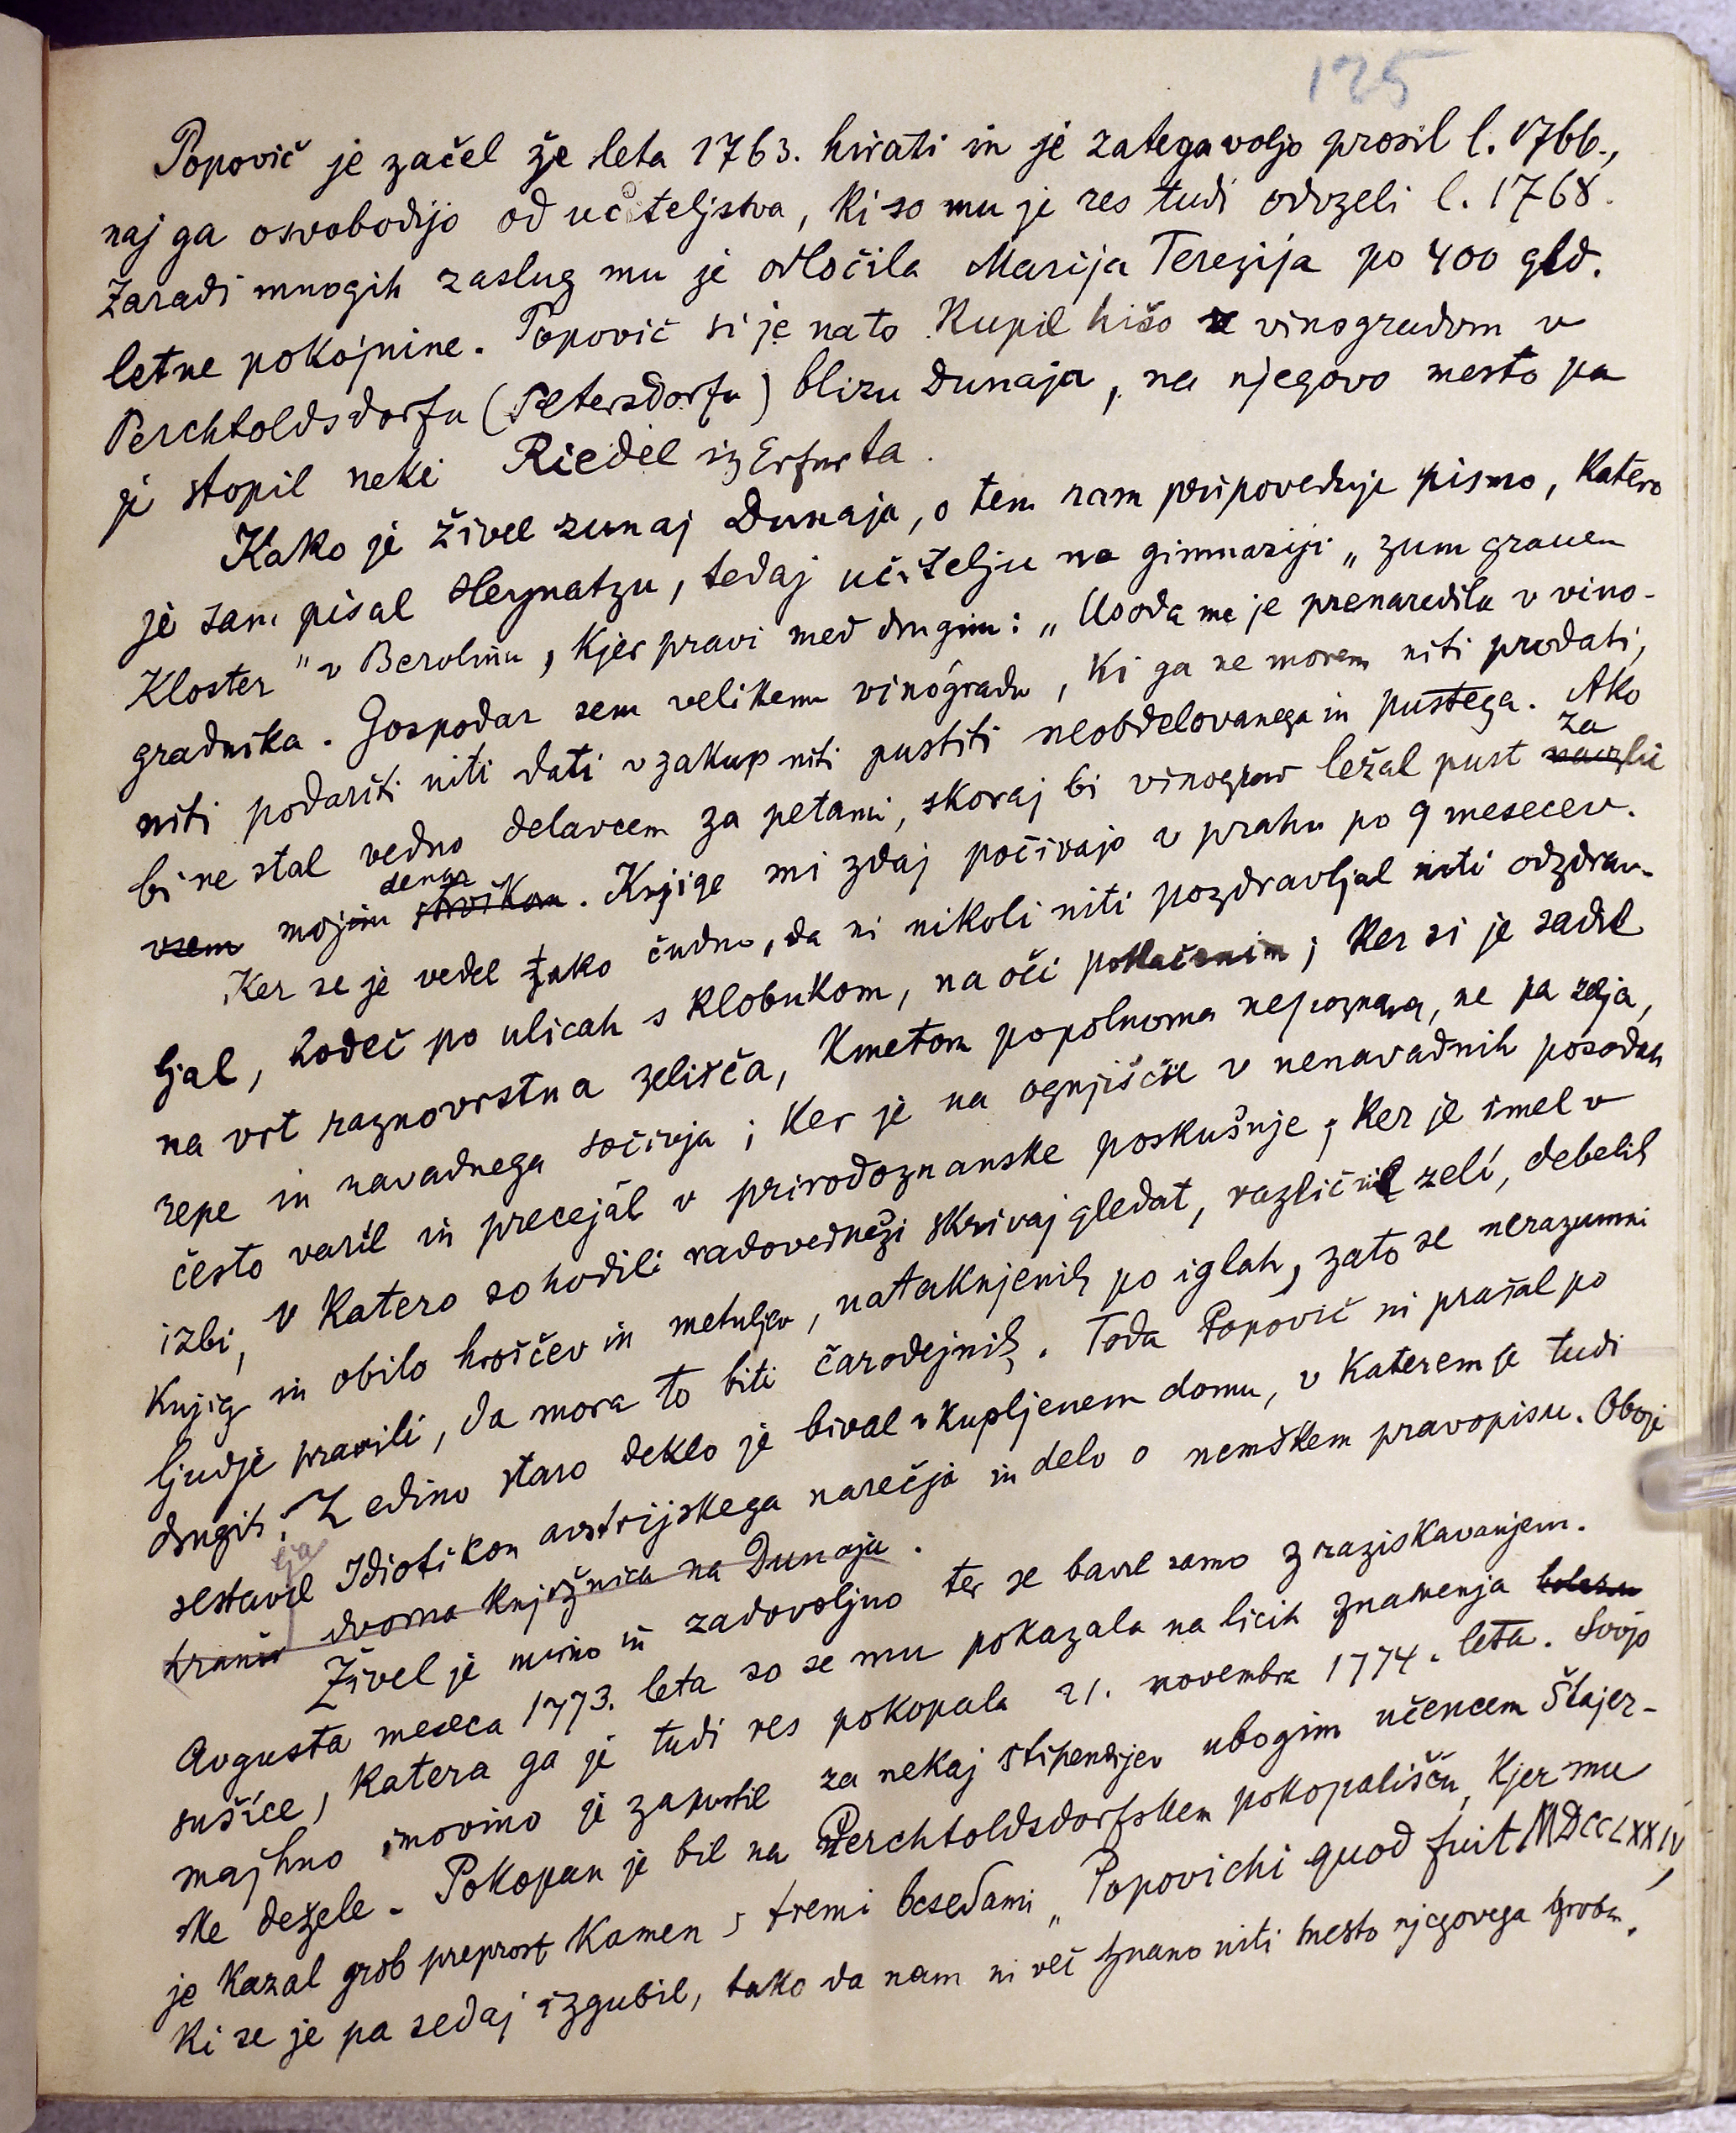 125
Popovič je začel že leta 1763. hirati in je zategavoljo prosil l. 1766.,
naj ga osvobodijo od učiteljstva, ki so mu je res tudi odvzeli l. 1768.
Zaradi mnogih zaslug mu je odločila Marija Terezija po 400 gld.
letne pokojnine. Popovič si je nato kupil hišo z vinogradom v
Perchtoldsdorfu (Petersdorfu) blizu Dunaja, na njegovo mesto pa
je stopil neki Riedel iz Erfurta.
Kako je živel zunaj Dunaja, o tem nam pripoveduje pismo, katero
je sam pisal Heynatzu, tedaj učitelju na gimnaziji „zum grauen
Kloster" v Berolinu, kjer pravi med drugim: „Usoda me je prenaredila v vino-
gradnika. Gospodar sem velikemu vinogradu, ki ga ne morem niti prodati,
niti podariti niti dati v zakup niti pustiti neobdelovanega in pustega. Ako
bi ne stal vedno delavcem za petami, skoraj bi vinograd ležal pust za navzlic
vsem mojim denar stroškom. Knjige mi zdaj počivajo v prahu po 9 mesecev.
Ker se je vedel tako čudno, da ni nikoli niti pozdravljal niti odzdrav-
ljal, hodeč po ulicah s klobukom, na oči potlačenim; ker si je sadil
na vrt raznovrstna zelišča, kmetom popolnoma nepoznana, ne pa zelja,
repe in navadnega sočivja; ker je na ognjišče v nenavadnih posodah
često varil in precejal v prirodoznanske poskušnje; ker je imel v
izbi, v katero so hodili radovedneži skrivaj gledat, različnih zeli, debelih
knjig in obilo hroščev in metuljev, nataknjenih po iglah, zato se nerazumni
ljudje pravili, da mora to biti čarodejnik. Toda Popovič ni prašal po
drugih. Z edino staro deklo je bival v kupljenem domu, v katerem je tudi
sestavil Idiotikon avstrijskega narečja in delo o nemškem pravopisu. Oboje
hrani dvorna knjižnica na Dunaju.
Živel je mirno in zadovoljno ter se bavil samo z raziskavanjem.
Avgusta meseca 1773. leta so se mu pokazala na licih znamenja
sušice, katera ga je tudi res pokopala 21. novembra 1774. leta. Svojo
majhno imovino je zapustil za nekaj štipendijev ubogim učencem Štajer-
ske dežele. Pokopan je bil na Perchtoldsdorfskem pokopališču, kjer mu
je kazal grob preprost kamen s tremi besedami „Popovichi quod fuit MDCCLXXIV,
ki se je pa sedaj izgubil, tako da nam ni več znano niti mesto njegovega groba.